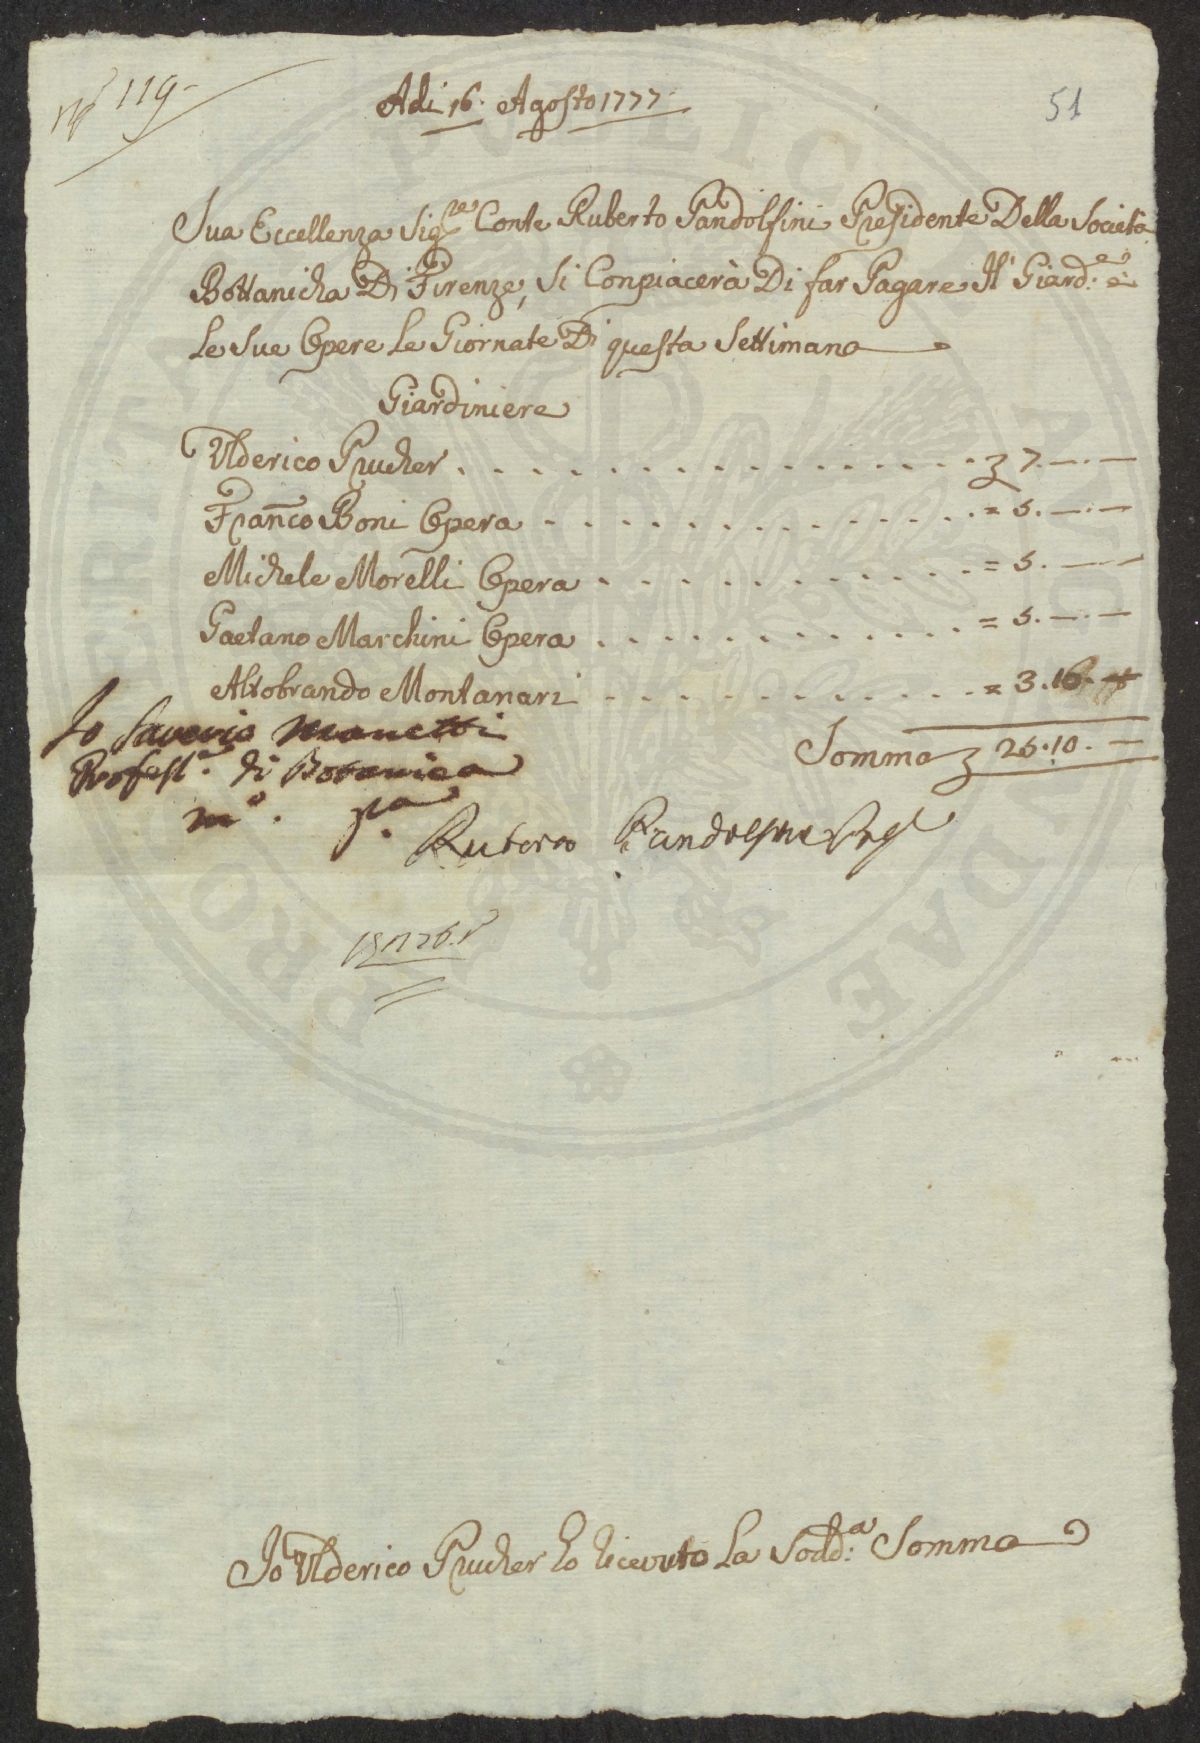 N° 119
51
Adi 16. Agosto 1777
Sua Eccellenza Sig.re Conte Ruberto Pandolfini Presidente Della Società
Bottanicha Di Firenze, Si Conpiacerà Di far Pagare Il Giard.e e
Le Sue Opere Le Giornate Di questa Settimana
Giardiniere
Ulderico Prucher . . . . . . . . . . . . £ 7. — . —
Franco Boni Opera . . . . . . . . . . = 5. — . —
Michele Morelli Opera . . . . . . . . . = 5. — . —
Gaetano Marchini Opera . . . . . . . . = 5. — . —
Altobrando Montanari . . . . . . . . . = 3.10. —
Somma £ 25.10. —
Io Saverio Manetti
Profess.e di Botanica
m.o p.a
Ruberto Pandolfini
Io Ulderico Prucher ho ricevuto La Sodd.a Somma
PUBLICA